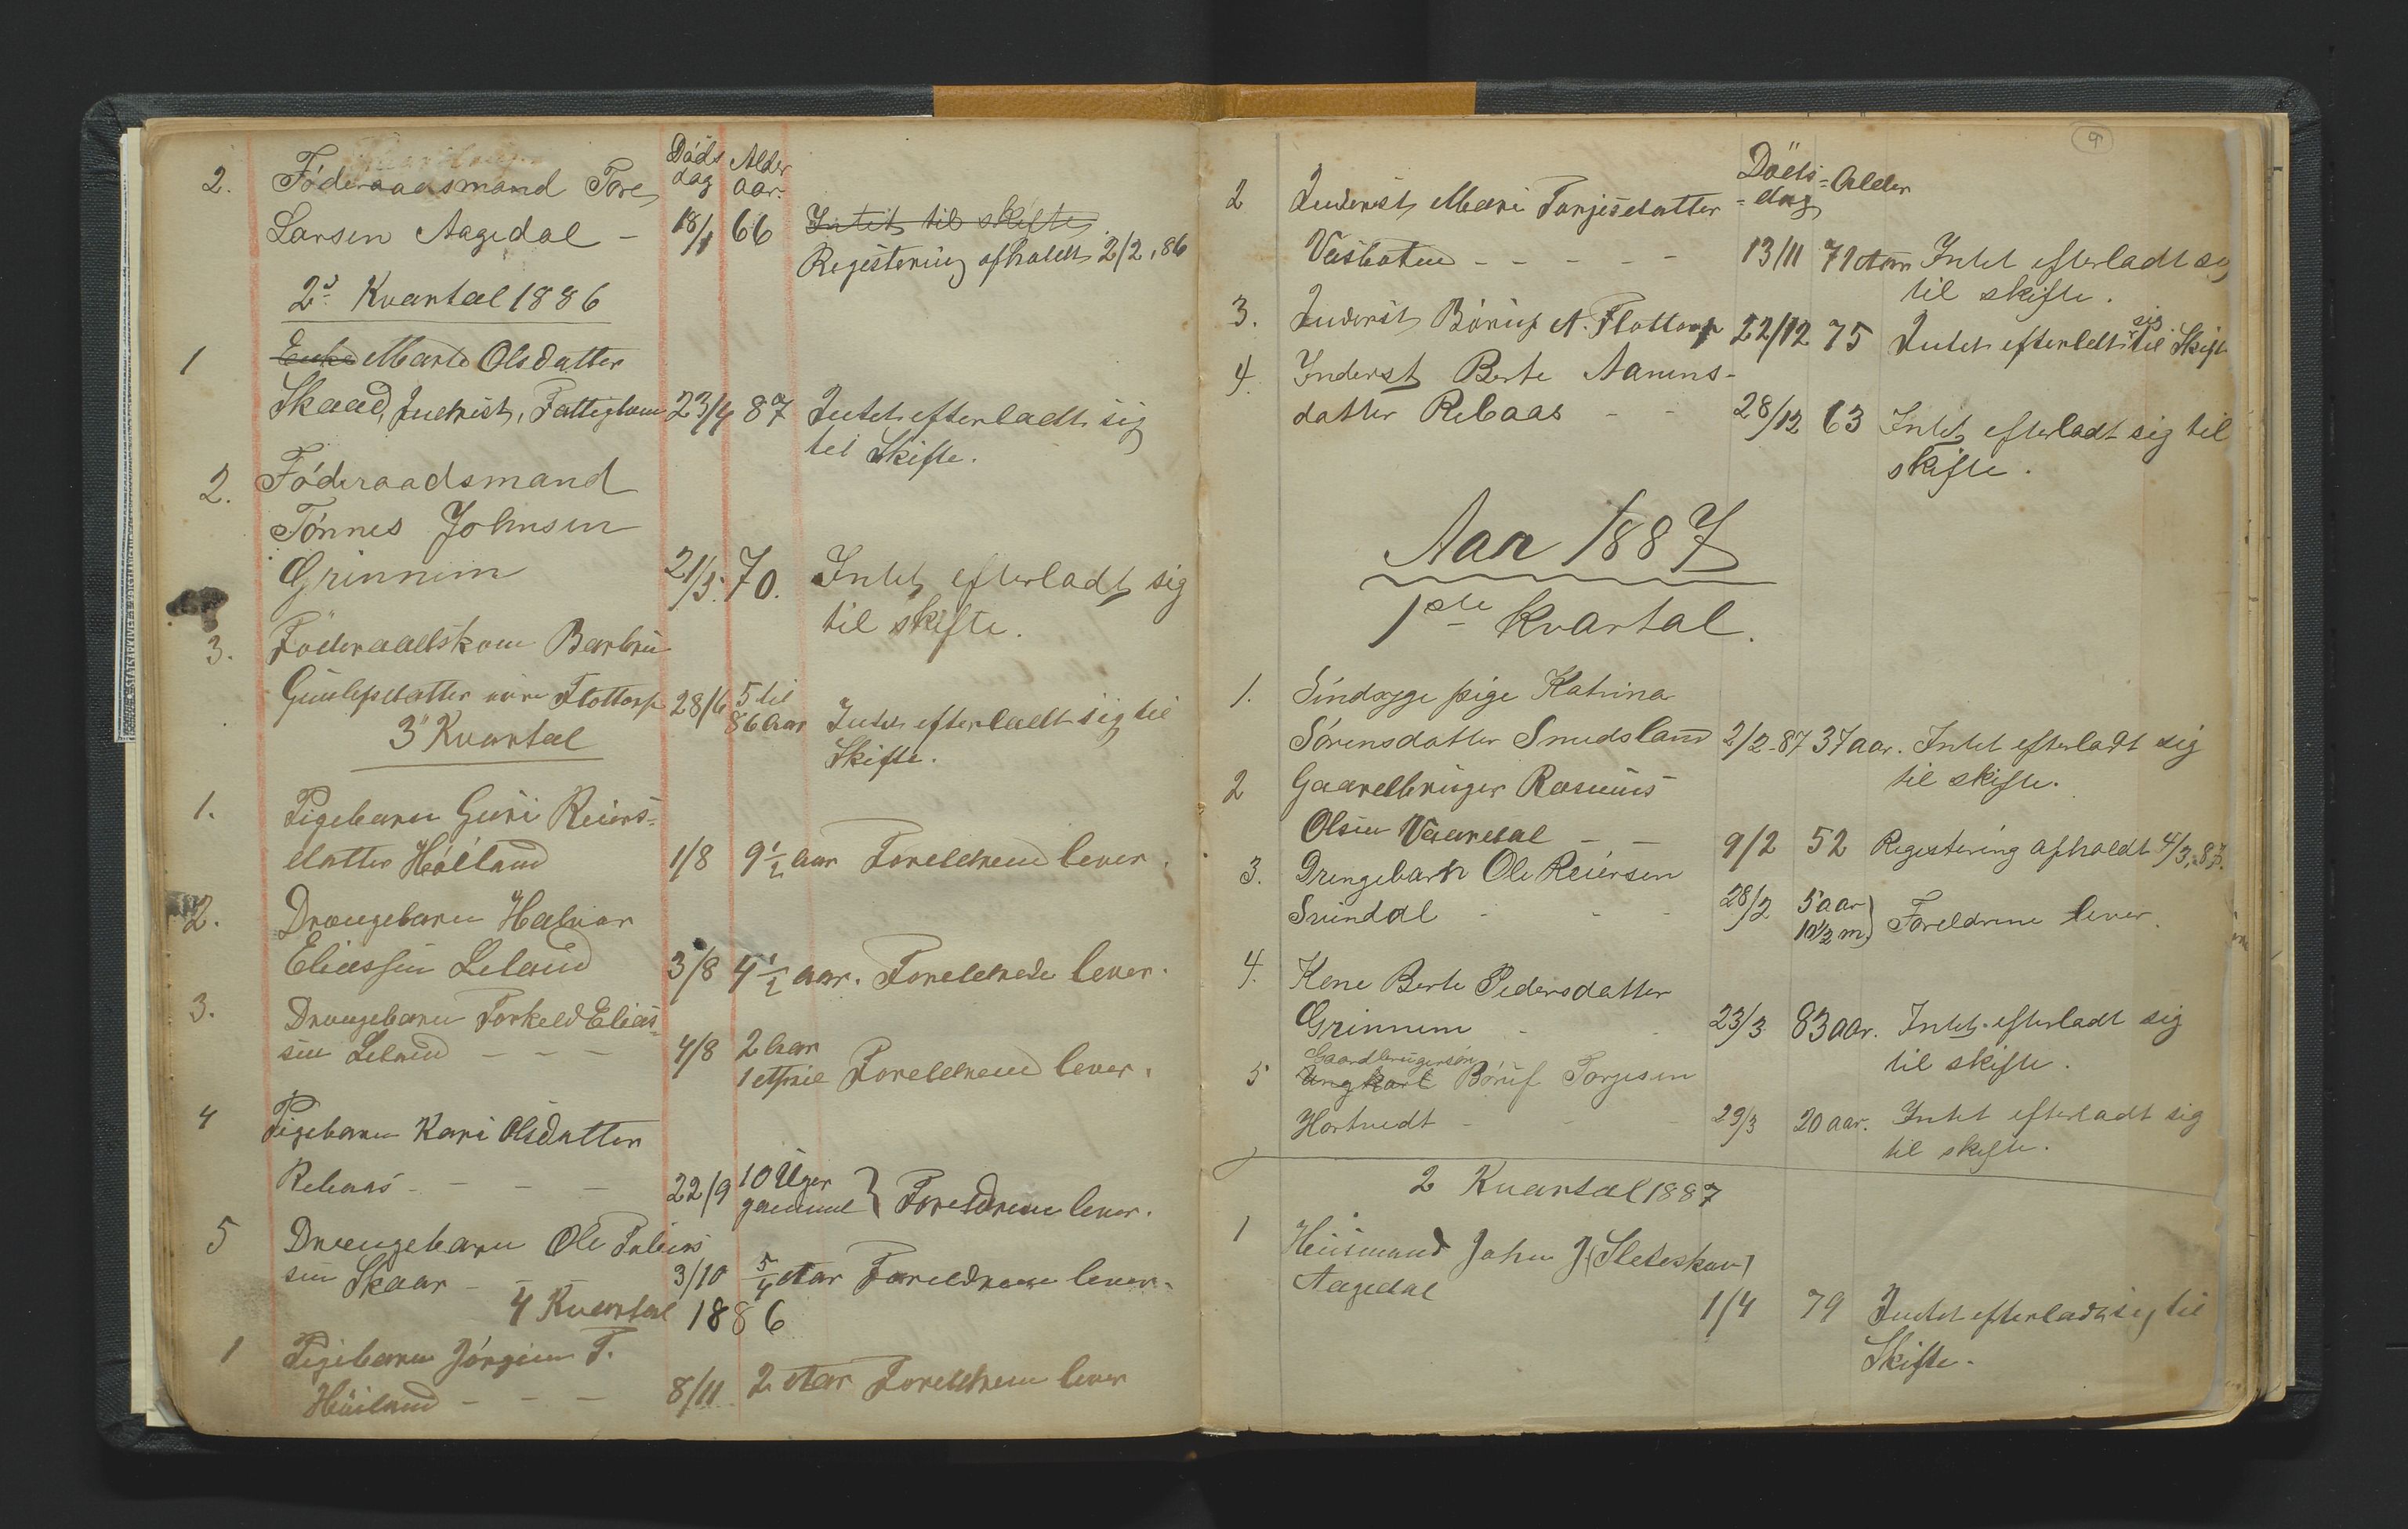 Döds Alder
dag aar.
2. Föderaadsmand Tore
Larsen Aagedal - 18/1 66 Intet til skifte
Registering afholdt 2/2, 86
2d Kvartal 1886
1 Enke Marte Olsdatter
Skaad, Inderist, Fattiglem 23/4 87 Intet efterladt sig
til Skifte.
2. Föderaadsmand
Tönnes Johnsen
Grinnim 21/5. 70. Intet efterladt sig
til skifte.
3. Föderaadskone Barbru
Gunlefsdatter Flottorp 28/6 5 til
86 Aar Intet efterladt sig til
Skifte.
3d Kvartal
1. Pigebarn Guri Reiers-
datter Hölland 1/8 9 1/2 Aar Foreldrene lever.
2. Drængebarn Halvor
Eliassen Leland 3/8 4 1/2 aar. Foreldrene lever.
3. Drængebarn Torkeld Elias-
sen Leland - - - 4/8 2 Aar
1 Foreldrene lever.
4 Pigebarn Kari Olsdatter
Rebaas - - - - 22/9 10 Uger
gammel } Foreldrene lever.
5 Drængebarn Ole Tobias
sen Skaar - - - 3/10 5/4 Aar Foreldrene lever.
4 Kvartal 1886
1 Pigebarn Jörgine T.
Hüiland - - - 8/11 2 Aar Foreldrene lever
9
Döds- Alder
-dag
2 Inderist Mari Tarjesdatter
Vasboten - - - - - 13/11 71 Aar Intet efterladt sig
til skifte.
3. Inderist Böruf A. Flottorp 22/12 75 Intet efterledt sig til Skift
4. Inderst Berte Aanens-
datter Rebaas - - 28/12 63 Intet efterladt sig til
skifte.
Aar 1887
1ste Kvartal.
1. Sindsyge pige Katrina
Sörensdatter Snudsland 2/2-87 37 aar. Intet efterladt sig
til skifte.
2 Gaardbruger Rasmus
Olsen Vaaredal - - 9/2 52 Registering afholdt 4/3, 87.
3. Drengebarn Ole Reiersen
Svindal - - - 28/2 5 aar
10 1/2 m } Foreldrene lever.
4. Kone Berte Pedersdatter
Grinnem - - 23/3 83 aar. Intet efterladt sig
til skifte.
Gaardbrugersön
5 Ungkarl Böruf Torjesen
Hortvedt - - 29/3 20 aar. Intet efterladt sig
til skifte.
2 Kvartal 1887
1 Huusmand John J (Sleteskar)
Aagedal 1/4 79 Intet efterladt sig til
Skifte.